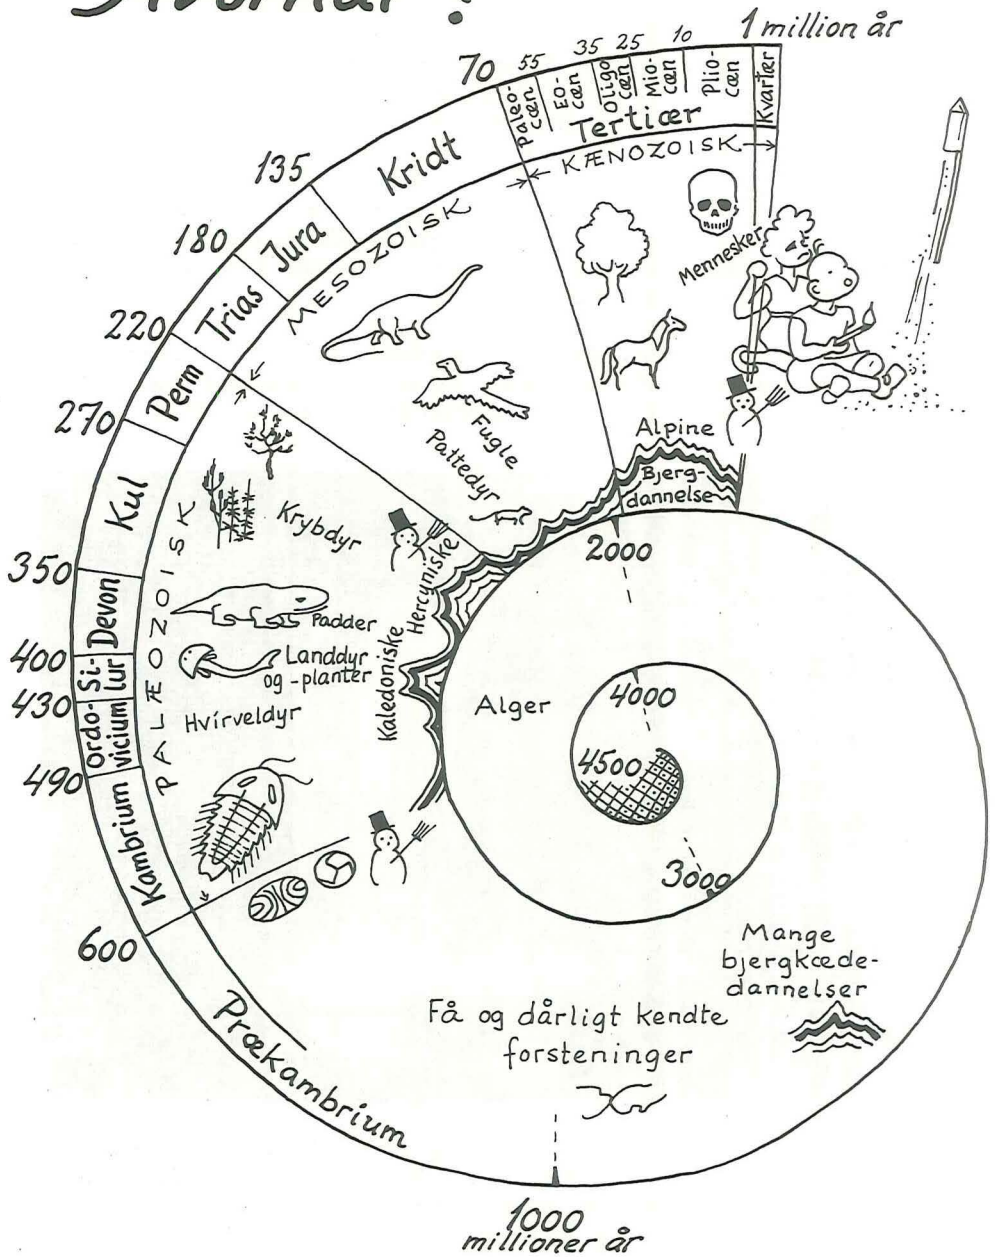 Hvornår?
1 million år
10
25
35
55
70
Kvartær
Plio-
cæn
Mio-
cæn
Oligo
cæn
Eo-
cæn
Paleo-
cæn
Tertiær
KÆNOZOISK
135
Kridt
180
Jura
MESOZOISK
220
Trias
270
Perm
Kul
350
Devon
400
Si-
lur
430
Ordo-
vicium
490
Kambrium
600
PALÆOZOISK
Prækambrium
Mennesker
Fugle
Pattedyr
Krybdyr
Padder
Landdyr
og -planter
Hvirveldyr
Alpine
Bjerg-
dannelse
Hercyniske
Kaledoniske
2000
Alger
4000
4500
3000
Mange
bjergkæde-
dannelser
Få og dårligt kendte
forsteninger
1000
millioner år